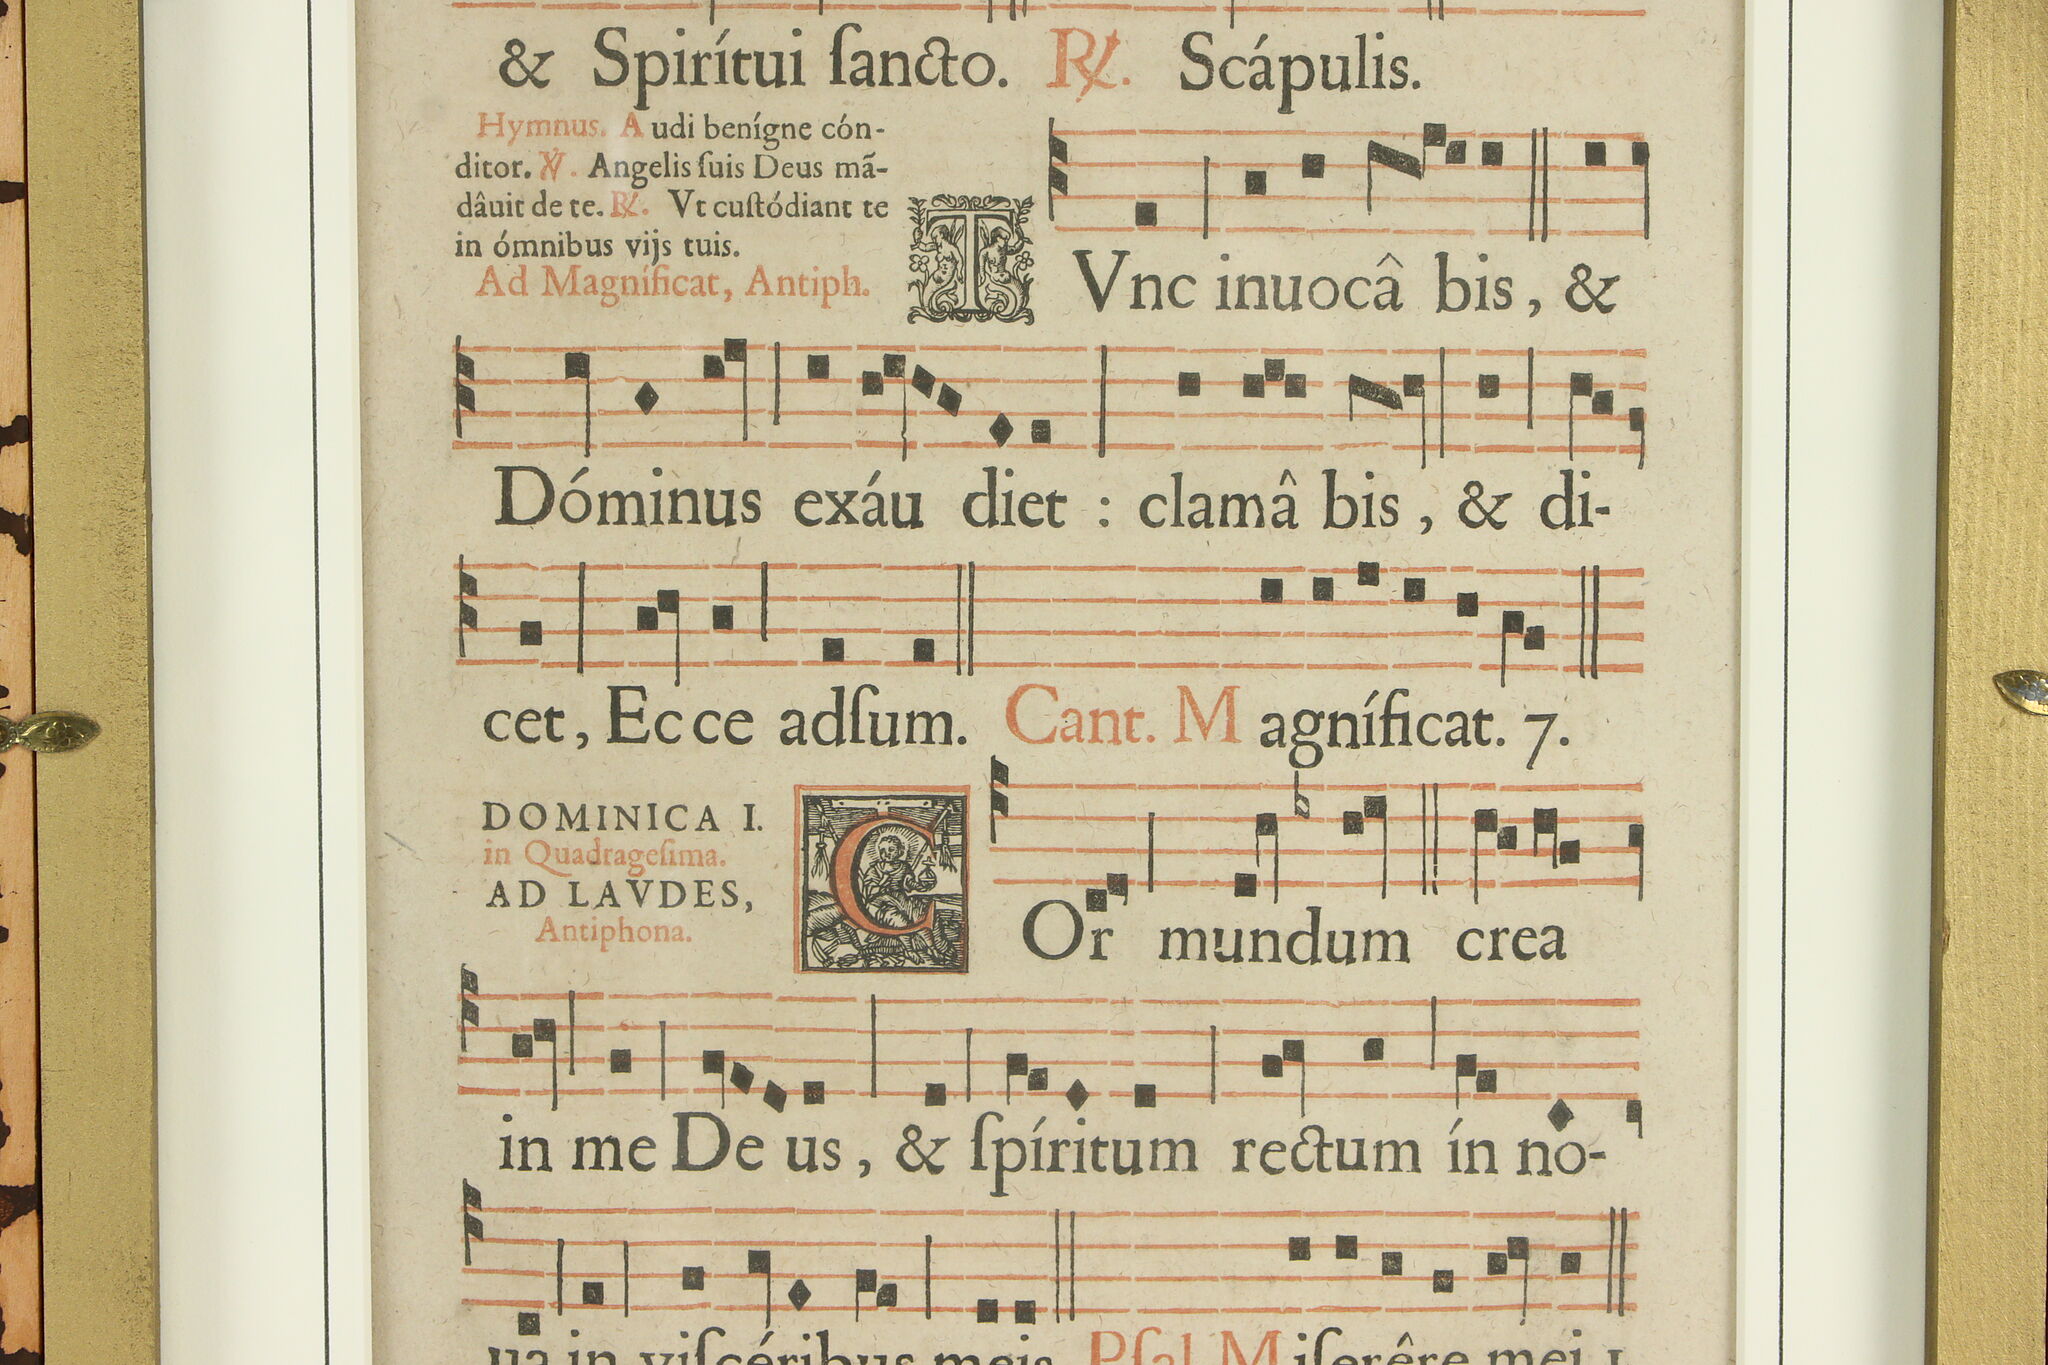 & Spirítui ſancto. ℟. Scápulis.
Hymnus. Audi benígne cón-
ditor. ℣. Angelis ſuis Deus mã-
dâuit de te. ℟. Vt cuſtódiant te
in ómnibus vijs tuis.
Ad Magníficat, Antiph.
TVnc inuocâ bis, &
Dóminus exáu diet : clamâ bis, & di-
cet, Ec ce adſum. Cant. Magníficat. 7.
DOMINICA I.
in Quadrageſima.
AD LAVDES,
Antiphona.
COr mundum crea
in me De us, & ſpíritum rectum ín no-
ua in viſcéribus meis. Pſal. Miſerêre mei 1